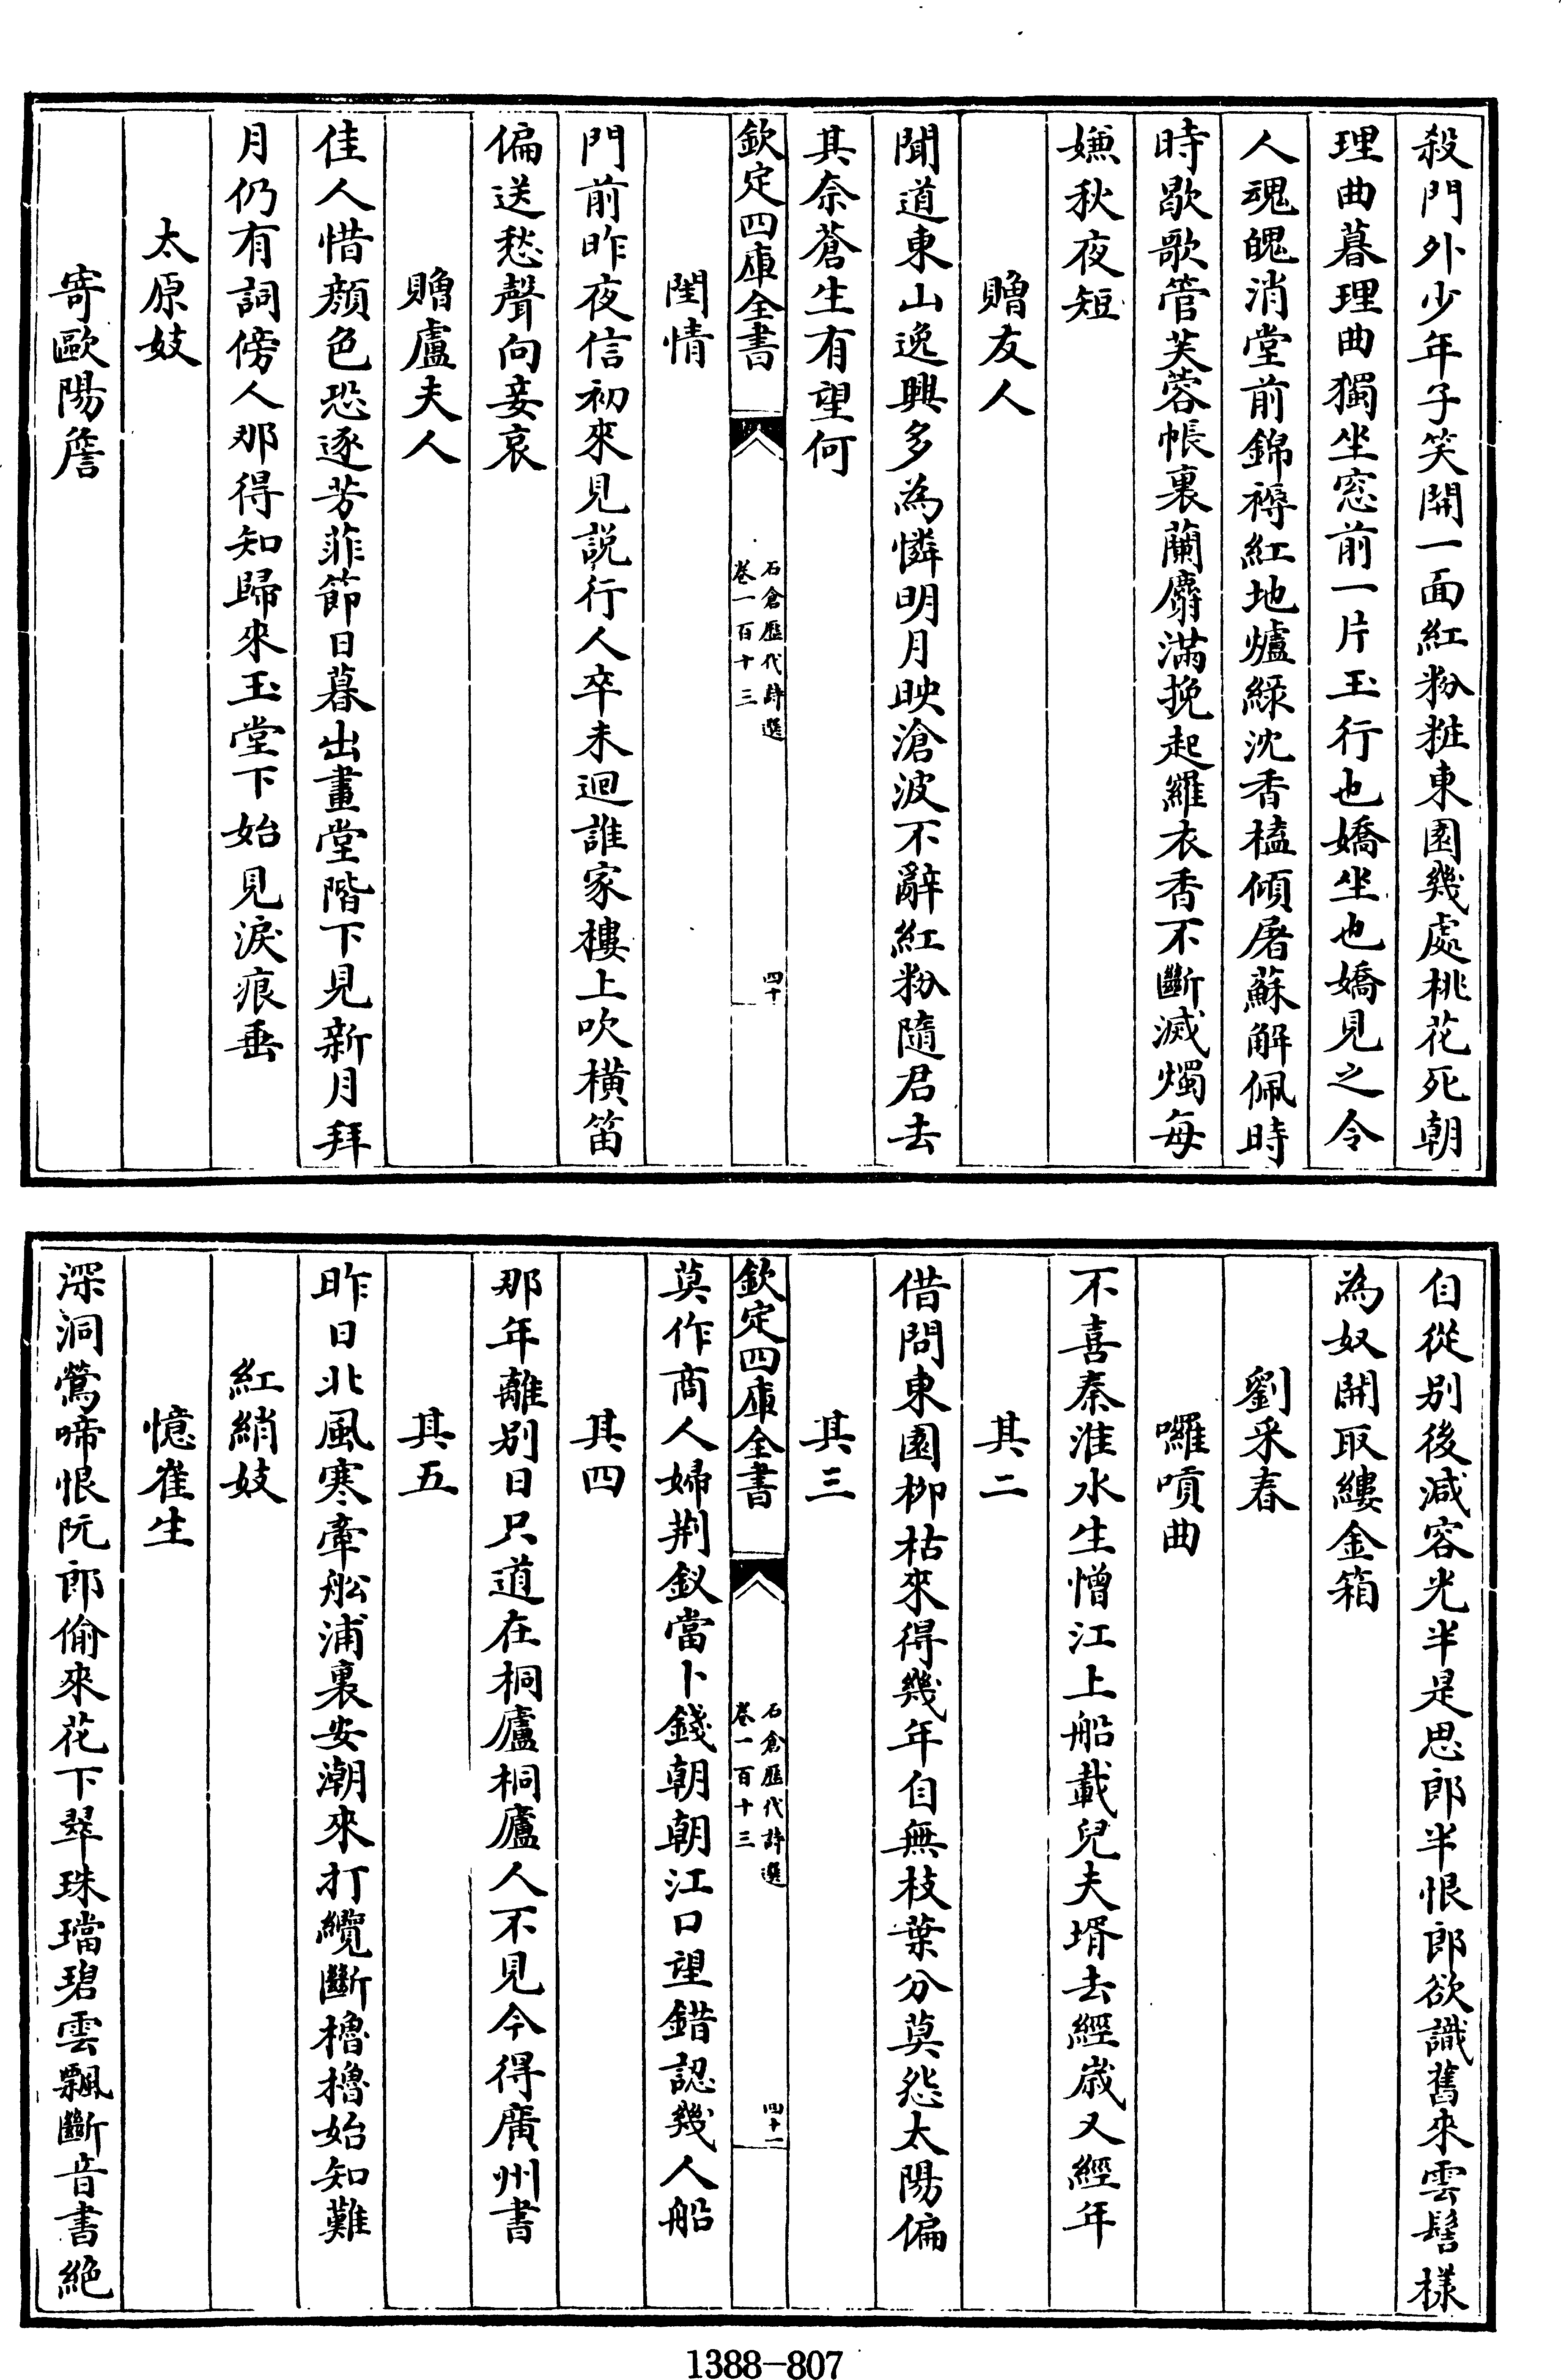 殺門外少年子笑開一面紅粉粧東園幾處桃花死朝
理曲暮理曲獨坐窓前一片玉行也嬌坐也嬌見之令
人魂魄消堂前錦褥紅地爐綠沈香榼傾屠蘇解佩時
時歇歌管芙蓉帳裏蘭麝滿挽起羅衣香不斷滅燭每
嫌秋夜短
贈友人
聞道東山逸興多為憐明月映滄波不辭紅粉隨君去
其奈蒼生有望何
欽定四庫全書
石倉歷代詩選
卷一百十三
四十
閨情
門前昨夜信初來見說行人卒未迴誰家樓上吹橫笛
偏送愁聲向妾哀
贈盧夫人
佳人惜顔色恐逐芳菲節日暮出畫堂階下見新月拜
月仍有詞傍人那得知歸來玉堂下始見淚痕垂
太原妓
寄歐陽詹
自從别後減容光半是思郎半恨郎欲識舊來雲髻様
為奴開取縷金箱
劉采春
囉嗊曲
不喜秦淮水生憎江上船載兒夫壻去經歲又經年
其二
借問東園栁枯來得幾年自無枝葉分莫怨太陽偏
其三
欽定四庫全書
石倉歷代詩選
卷一百十三
四十一
莫作商人婦荆釵當卜錢朝朝江口望錯認幾人船
其四
那年離别日只道在桐廬桐廬人不見今得廣州書
其五
昨日北風寒牽舩浦裏安潮來打纜斷櫓櫓始知難
紅綃妓
憶崔生
深洞鶯啼恨阮郎偷來花下翠珠璫碧雲飄斷音書絶
1388-807